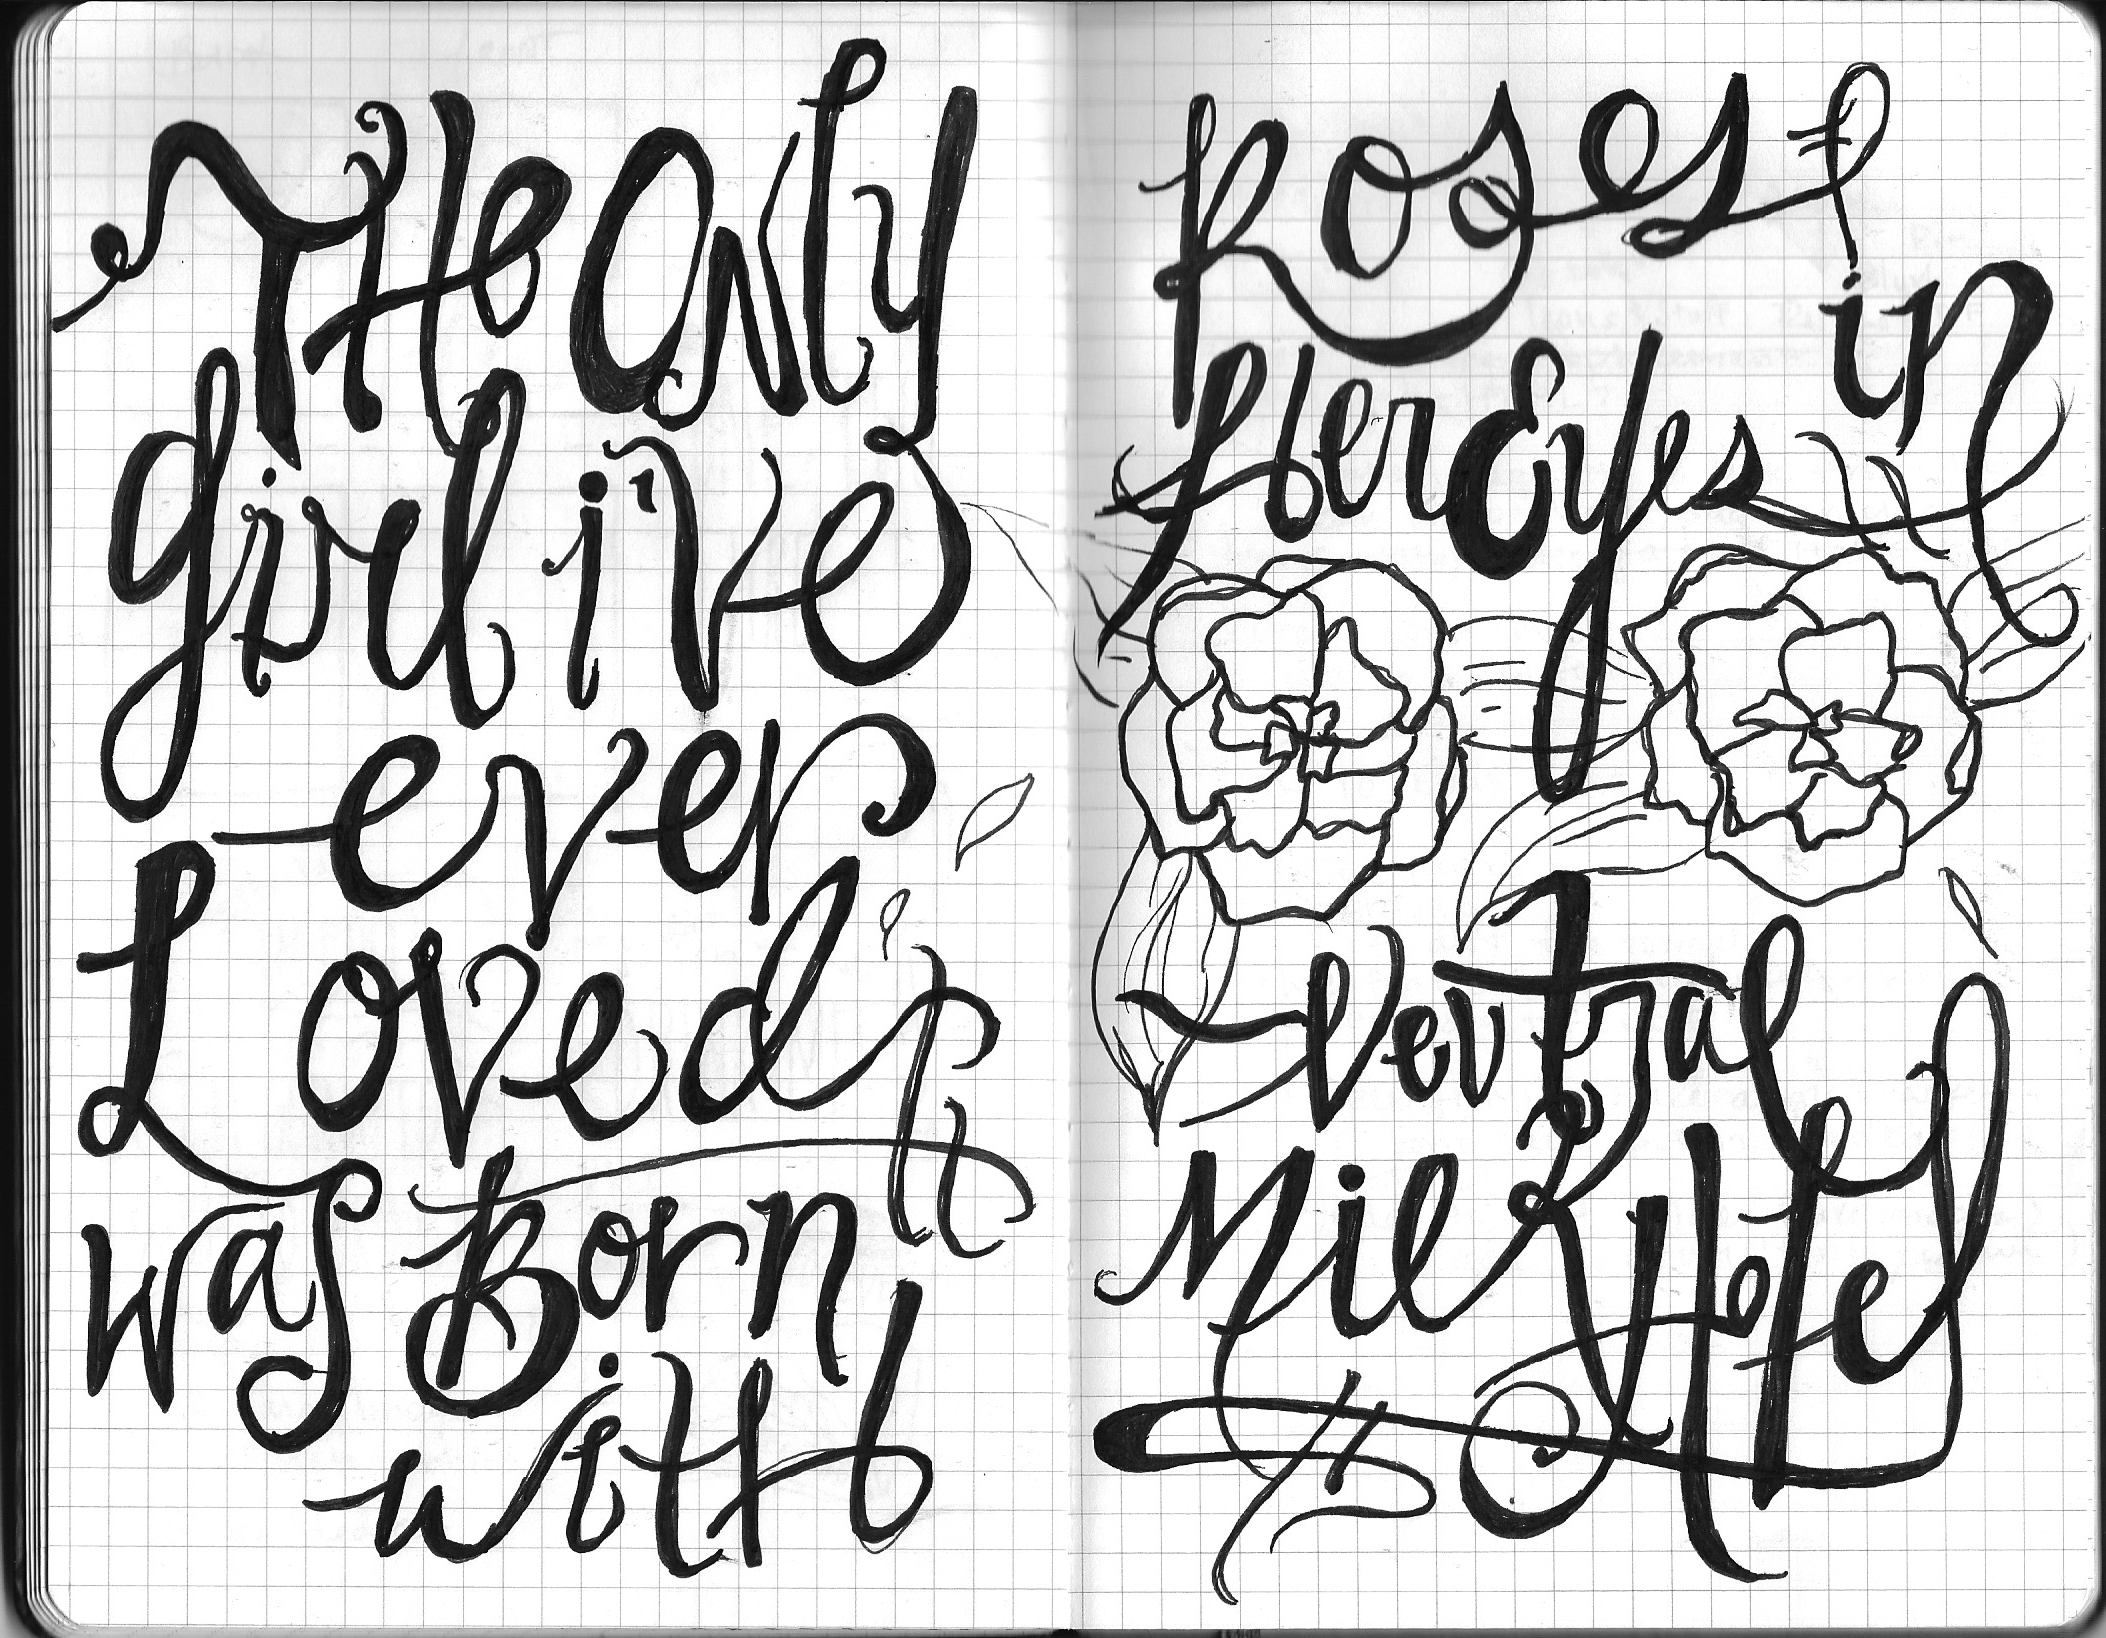 THe ONly
girl i've
ever
Loved
was Born
with
Roses
in
Her Eyes
Neutral
Milk Hotel